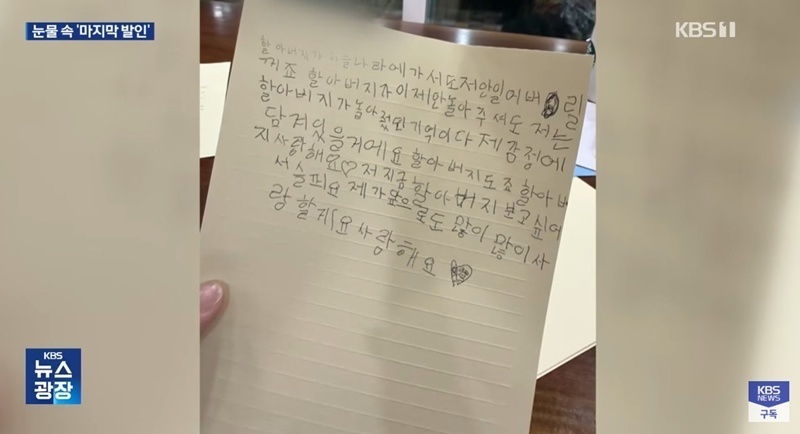 눈물 속 '마지막 발인'
KBS1
할아버지가 하늘나라에 가서도저안일어버릴
꺼죠 할아버지가이제안놀아주셔도 저는
할아버지가놀아줬던기억이다제감정에
담겨있을거에요할아버지도죠할아버
지사랑해요♡저지금할아버지보고싶어
서슬퍼요제가앞으로도많이많이사
랑할게요사랑해요♥
KBS
뉴스
광장
KBS
NEWS
구독